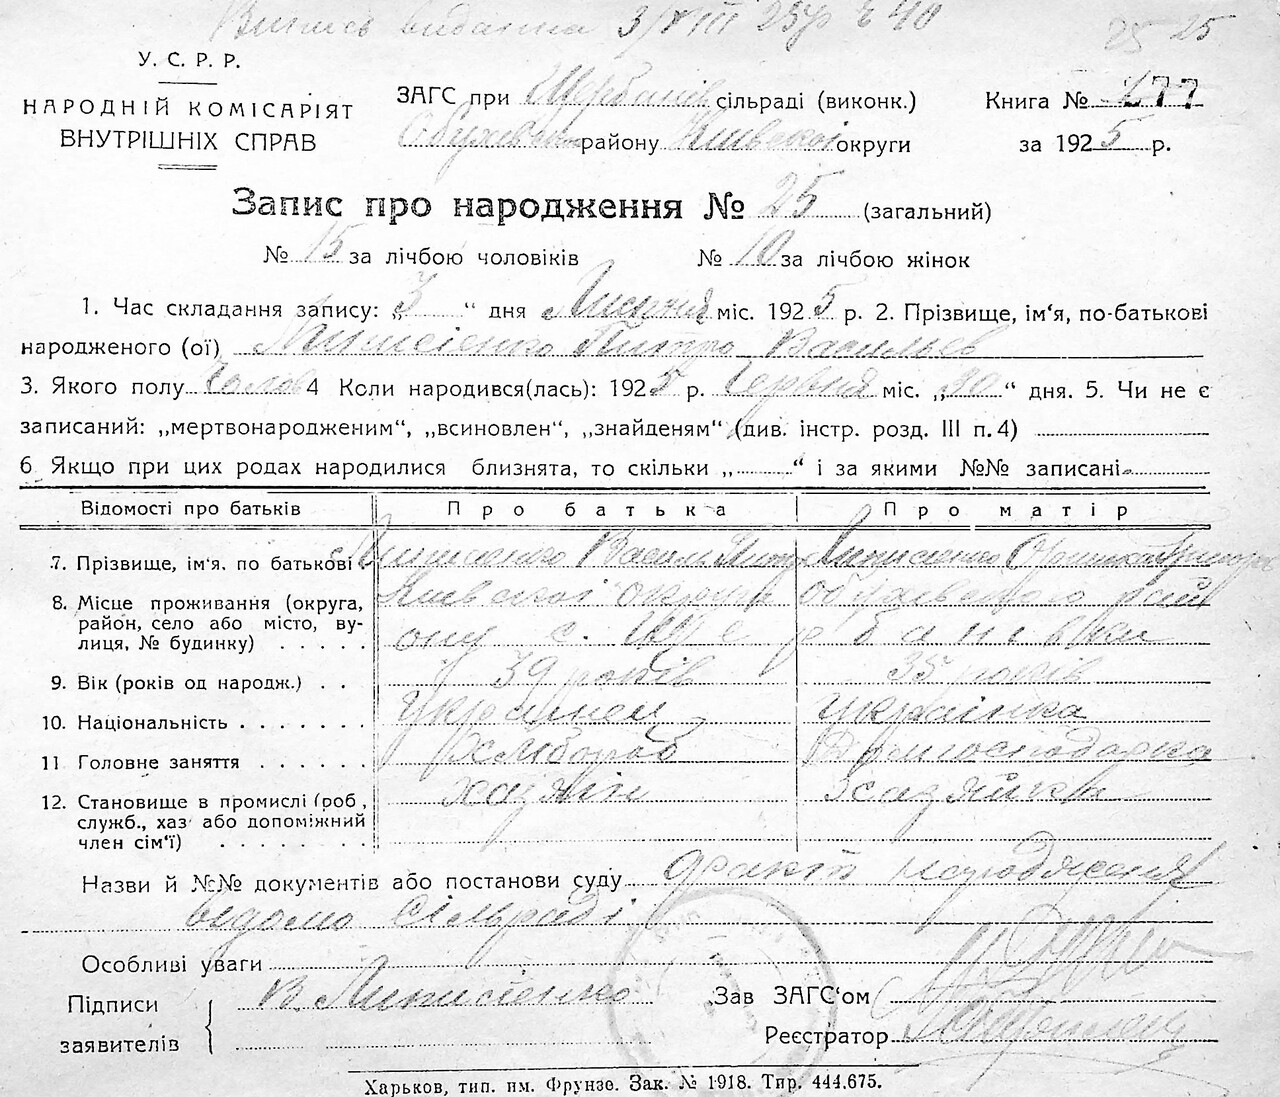 Випись видана 3/VIII 25р № 40
25 25
У. С. Р. Р.
НАРОДНІЙ КОМІСАРІЯТ
ВНУТРІШНІХ СПРАВ
ЗАГС при Щербанів сільраді (виконк.)
Обухівськ району Київської округи
Книга № 177
за 1925 р.
Запис про народження № 25 (загальний)
№ 15 за лічбою чоловіків № 10 за лічбою жінок
1. Час складання запису: „3“ дня Липня міс. 1925 р. 2. Прізвище, ім'я, по-батькові
народженого (ої) Петро Васильев
3. Якого полу Чолов 4 Коли народився(лась): 1925 р. Червня міс. „30“ дня. 5. Чи не є
записаний: „мертвонародженим“, „всиновлен“, „знайденям“ (див. інстр. розд. III п. 4)
6 Якщо при цих родах народилися близнята, то скільки „ “ і за якими №№ записані
Відомості про батьків Про батька Про матір
7. Прізвище, ім'я, по батькові Васил Петр
8. Місце проживання (округа, Киевської округи Обухевского рай
район, село або місто, ву- ону с. Щербанівка
лиця, № будинку)
9. Вік (років од народж.) 39 років 35 років
10. Національність Українец Українка
11 Головне заняття Хлібороб Домгосподарка
12. Становище в промислі (роб, хазяін Хазяйка
служб., хаз або допоміжний
член сім'ї)
Назви й №№ документів або постанови суду факт народження
відомо сільраді
Особливі уваги
Підписи В.
заявителів
Зав ЗАГС'ом
Реєстратор
Харьков, тип. им. Фрунзе. Зак. № 1918. Тир. 444.675.